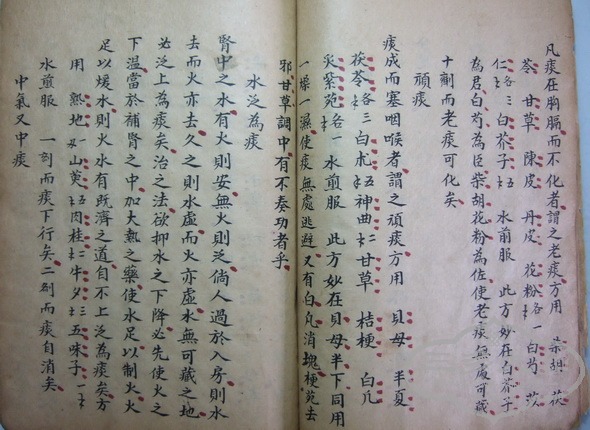 凡痰在胸膈而不化者謂之老痰方用 柴胡 茯
苓 甘草 陳皮 丹皮 花粉各一 白芍 苡
仁各三 白芥子五 水煎服 此方妙在白芥子
為君白芍為臣柴胡花粉為佐使老痰無處可藏
十劑而老痰可化矣
頑痰
痰成而塞咽喉者謂之頑痰方用 貝母 半夏
茯苓各三 白朮五 神曲二 甘草 桔梗 白凡
炙紫菀各一 水煎服 此方妙在貝母半下同用
一燥一濕使痰無處逃避又有白凡消塊梗菀去
邪甘草調中有不奏功者乎
水泛為痰
腎中之水有火則安無火則泛倘人過於入房則水
去而火亦去久之則水虛而火亦虛水無可藏之地
必泛上為痰矣治之法欲抑水之下降必先使火之
下溫當於補腎之中加大熱之藥使水足以制火火
足以煖水則火水有既濟之道自不上泛為痰矣方
用 熟地一 山萸五 肉桂二 牛夕三 五味子一
水煎服 一刻而痰下行矣二刻而痰自消矣
中氣又中痰